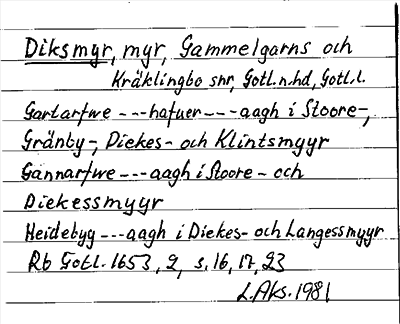 Diksmyr, myr, Gammelgarns och
Kräklingbo snr, Gotl.n.hd, Gotl.l.
Gartarfwe ---hafuer ---aagh i Stoore-,
Gränby-, Diekes- och Klintsmyyr
Gannarfwe ---aagh i Stoore- och
Diekessmyyr
Heidebyg ---aagh i Diekes- och Langessmyyr
Rb Gotl. 1653, 2, s. 16, 17, 23
L.Aks. 1981